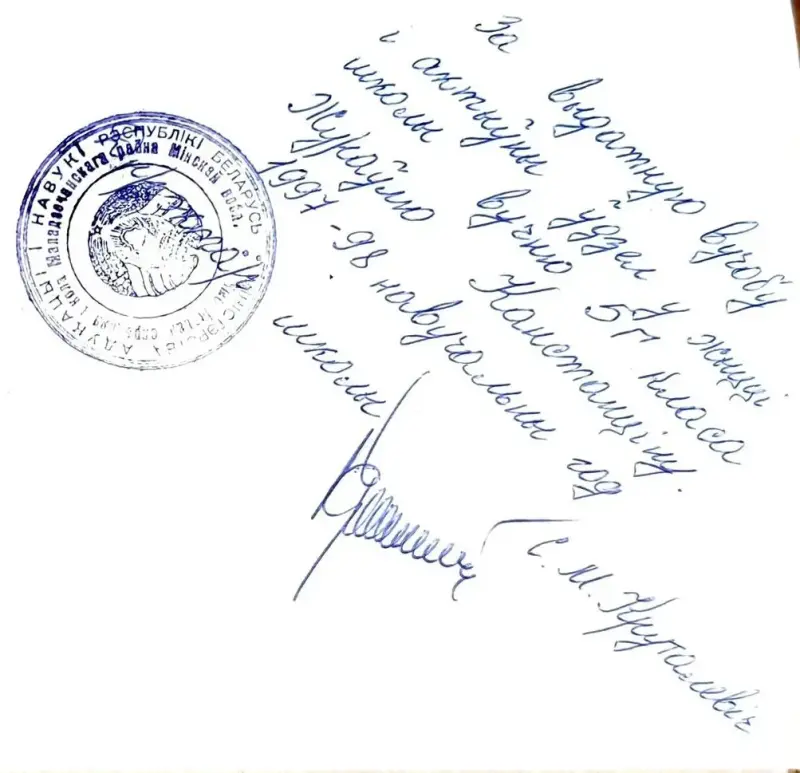 За выдатную вучобу
і актыўны ўдзел у жыцці
школы вучню 5 "Г" класа
Жукаўлю Канстанціну.
1997-98 навучальны год
школы
С. М. Круталевіч
МІНІСТЭРСТВА АДУКАЦЫІ І НАВУКІ РЭСПУБЛІКІ БЕЛАРУСЬ
Маладзечанскага раёна Мінскай вобл.